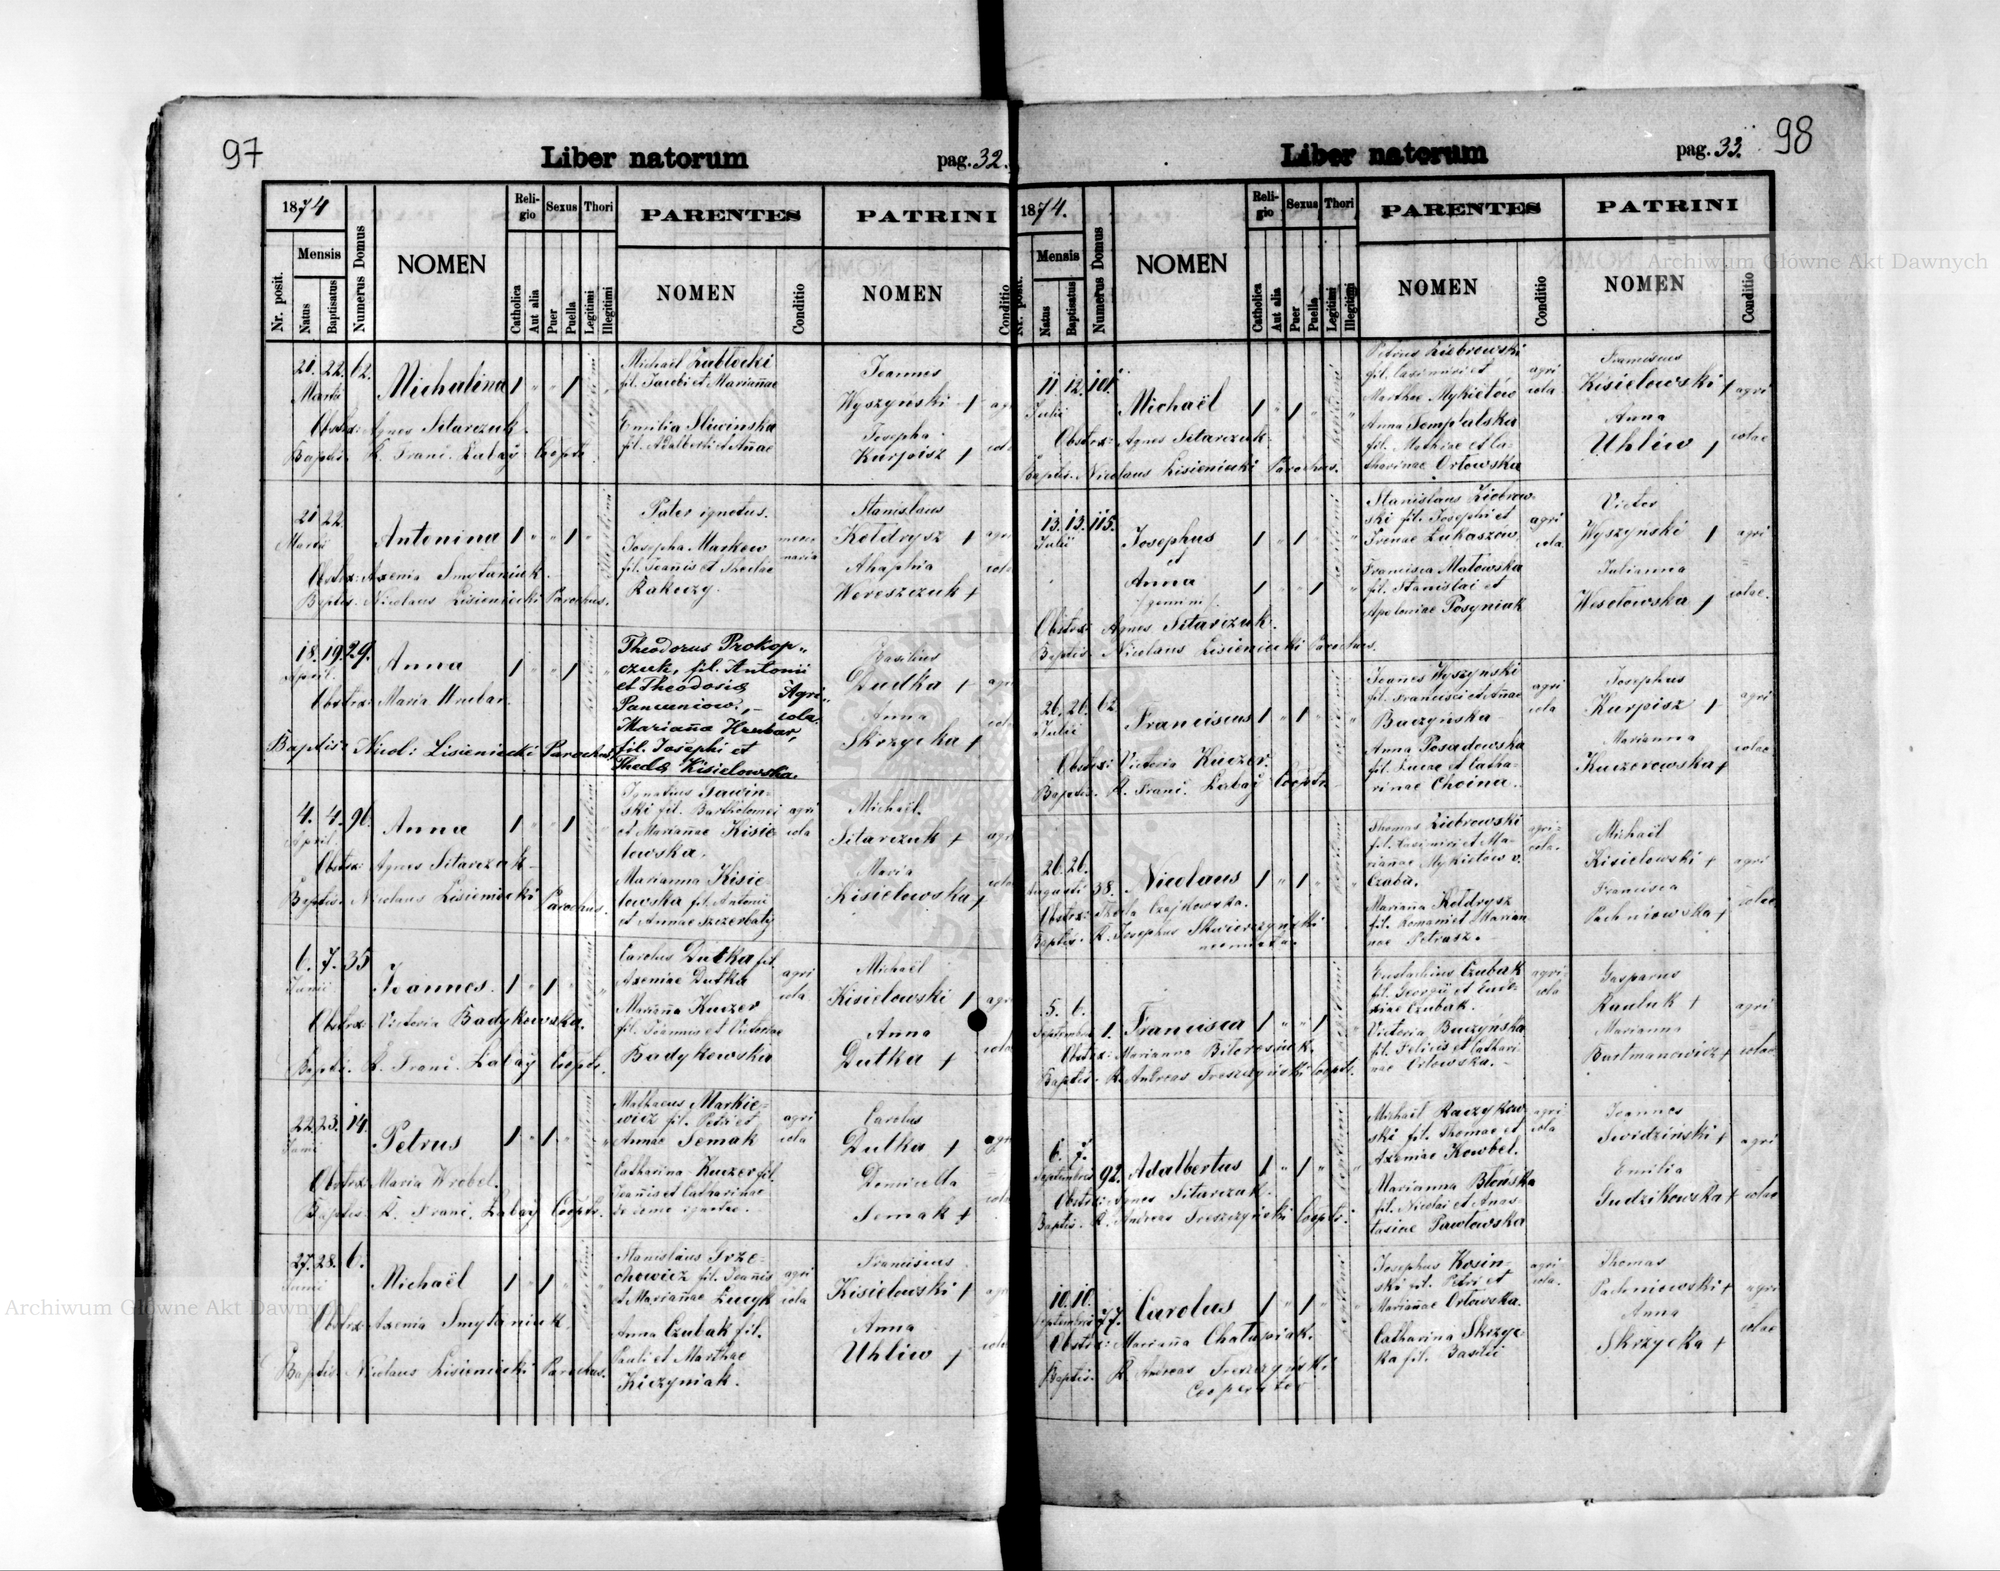 97
Liber natorum
pag. 32.
1874
Nr. posit.
Mensis
Natus
Baptisatus
Numerus Domus
NOMEN
Reli-
gio
Catholica
Aut alia
Sexus
Puer
Puella
Thori
Legitimi
Illegitimi
PARENTES
NOMEN
Conditio
PATRINI
NOMEN
Conditio
21. 22. 62.
Martii
Michalina 1 " " 1
Obstex: Agnes Sitarczuk.
Baptis. R. Frani. Labaÿ Coopts.
Michaël Zubłocki
fil. Jacobi et Mariañae
Emilia Sliwinska
fil. Adalberti et Añae
Joannes
Wyszynski +
Josepha
Kurpisz +
21 22
Martii
Antonina 1 " " 1
Obstex: Axenia Smytaniuk.
Baptis. Nicolaus Lisieniecki Parochus.
Pater ignotus.
Josepha Markow
fil. Joañis et Theclae
Rakoczy.
merce
naria
Stanislaus
Kołdrysz +
Ahaphia
Wereszczuk +
18. 19. 29.
April.
Anna 1 " " 1
Obstex: Maria Hrubar.
Baptis: Nicol: Lisieniecki Parochus,
Theodorus Prokop„
czuk, fil. Antonii
et Theodosiæ
Pancuniow., –
Mariaña Hrubar,
fil. Josephi et
Theclæ Kisielowska.
Agri„
cola.
Basilius
Dudka +
Anna
Skrzycka +
4. 4. 96.
April.
Anna 1 " 1
Obstex: Agnes Sitarczuk
Baptis. Nicolaus Lisieniecki Parochus.
Ignatius Sawin-
ski fil. Bartholomei
et Mariañae Kisie-
lowska.
Marianna Kisie
lowska fil. Antonii
et Annae Szczerbaty
agri
cola
Michaël
Sitarczuk +
Maria
Kisielowska +
6. 7. 35
Junii
Joannes. 1 " 1
Obstex: Victoria Badykowska.
Baptis. R. Frani. Labaÿ Coopts.
Carolus Dutka fil.
Axeniae Dutka
Mariaña Kuczer
fil. Joannis et Victoriae
Badykowska
agri
cola
Michaël
Kisielowski +
Anna
Dutka +
22. 23. 14.
Junii
Petrus 1 " 1
Obstex: Maria Wrobel.
Baptis. R. Frani. Labaÿ Coopts.
Mathaeus Markie-
wicz fil. Petri et
Annae Semak
Catharina Kuczer fil.
Joañis et Catharinae
agri
cola
Carolus
Dutka +
Domicella
Semak +
27. 28. 6.
Junii
Michaël 1 " 1
Obstex: Axenia Smytaniuk.
Baptis. Nicolaus Lisieniecki Parochus.
Stanislaus Grze-
chowicz fil. Joañis
et Mariañae Lucyk
Anna Czubak fil.
Pauli et Marthae
Kiczyniak.
agri
cola
Franciscus
Kisielowski +
Anna
Uhliw +
98
Liber natorum
pag. 33.
1874.
Nr. posit.
Mensis
Natus
Baptisatus
Numerus Domus
NOMEN
Reli-
gio
Catholica
Aut alia
Sexus
Puer
Puella
Thori
Legitimi
Illegitimi
PARENTES
NOMEN
Conditio
PATRINI
NOMEN
Conditio
11 12. 101.
Julii
Michaël 1 " 1
Obstex: Agnes Sitarczuk
Baptis. Nicolaus Lisieniecki Parochus.
Petrus Ziobrowski
fil. Casimiri et
Marthae Mykietów
Anna Sempalska
fil. Mathiae et Ca-
tharinae Orłowska
agri
cola
Franciscus
Kisielowski +
Anna
Uhliw +
agri
colae
13. 13. 115.
Julii
Josephus 1 " 1
et
Anna 1 " " 1
/gemini/
Obstex: Agnes Sitarczuk.
Baptis. Nicolaus Lisieniecki Parochus.
Stanislaus Ziobrow-
ski fil. Josephi et
Irenae Łukaszów,
Francisca Małowska
fil. Stanislai et
Apoloniae Posyniak
agri
cola.
Victor
Wyszyński +
Julianna
Wesołowska +
agri
colae.
26. 26. 62.
Julii
Franciscus 1 " 1
Obstex: Victoria Kuczer.
Baptis. R. Frani. Labaÿ Coopts.
Joanes Wyszyński
fil. Francisci et Añae
Baczyńska
Anna Posadowska
fil. Lucae et Catha-
rinae Choina.
agri
cola
Josephus
Kurpisz +
Marianna
Kuczorowska +
agri
colae
26. 26.
Augusti 38.
Nicolaus 1 " 1
Obstex: Thecla Czajkowska.
Baptis. R. Josephus Skwierczyński
neomista.
Thomas Ziobrowski
fil. Casimiri et Ma-
rianae Mykietow v.
Czaba.
Mariaña Kołdrysz
fil. Romani et Marian
nae Petrasz.
agri-
cola.
Michaël
Kisielowski +
Francisca
Pachniowska +
agri
colae
5. 6.
Septembris 1.
Francisca 1 " " 1
Obstex: Marianna Bitoresiuk.
Baptis. R. Andreas Treszczyński Coopts.
Eustachius Czubak
fil. Georgii et Eudo-
xiae Czubak.
Victoria Buczyńska
fil. Felicis et Cathari-
nae Orłowska.
agri-
cola
Gasparus
Rauluk +
Marianna
Bartmanowicz +
agri
colae
6. 7.
Septembris 92.
Adalbertus 1 " 1
Obstex: Agnes Sitarczuk.
Baptis. R. Andreas Treszczyński Coopts.
Michaël Raczykow-
ski fil. Thomae et
Axeniae Kowbel.
Marianna Błońska
fil. Nicolai et Anas-
tasiae Pawłowska
agri-
cola
Joannes
Swidziński +
Emilia
Gudzikowska +
agri
colae
10. 10.
Septembris 77.
Carolus 1 " 1
Obstex: Mariaña Chałupiak.
Baptis. R. Andreas Treszczyński
Cooperator
Josephus Kosin-
ski fil. Petri et
Mariañae Orłowska.
Catharina Skrzyc-
ka fil. Basilii
agri-
cola.
Thomas
Pachniowski +
Anna
Skrzycka +
agri
colae
Archiwum Główne Akt Dawnych
Archiwum Główne Akt Dawnych